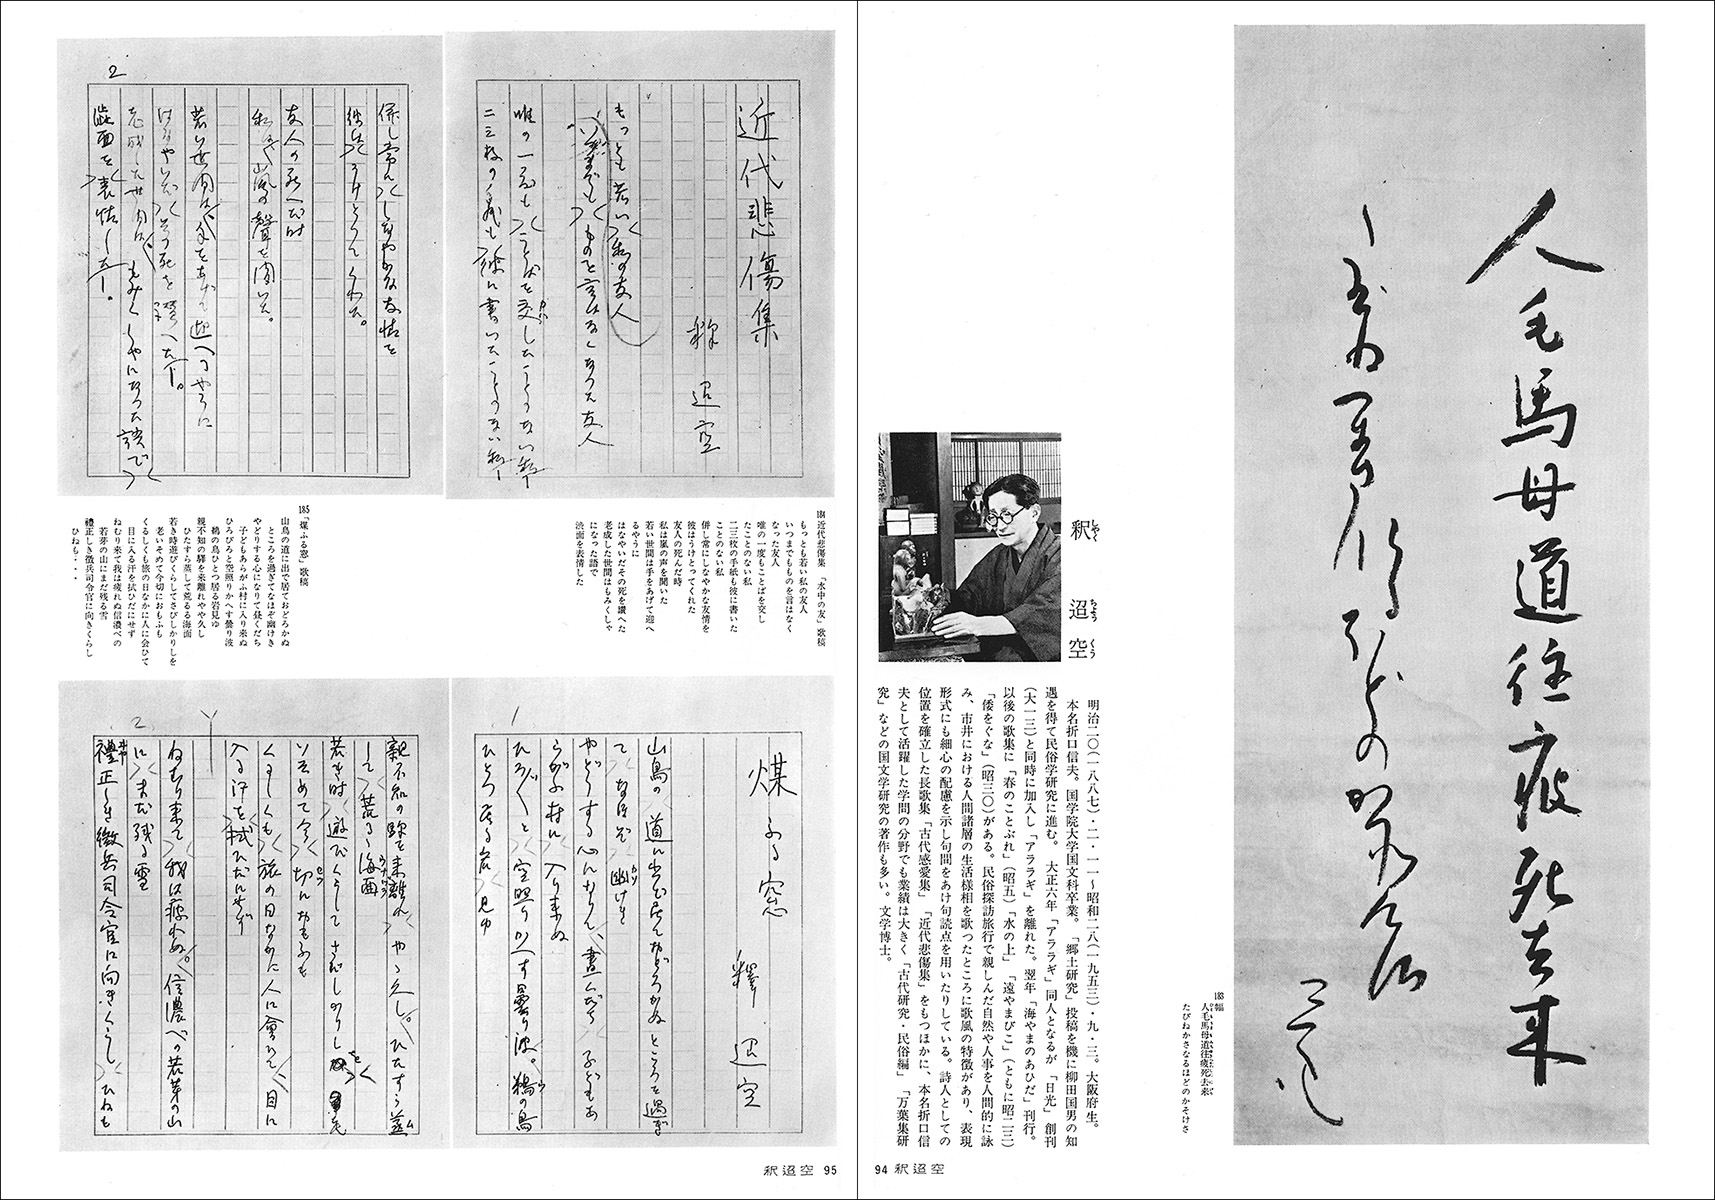 人毛馬母道往疲死去来
183 幅
人毛馬母道往疲死去来
たびねかさなるほどのかそけさ
釈 迢 空
しゃく ちょう くう
明治二〇(一八八七)・二・一一〜昭和二八(一九五三)・九・三。大阪府生。
本名折口信夫。国学院大学国文科卒業。「郷土研究」投稿を機に柳田国男の知
遇を得て民俗学研究に進む。大正六年「アララギ」同人となるが「日光」創刊
(大一三)と同時に加入し「アララギ」を離れた。翌年「海やまのあひだ」刊行。
以後の歌集に「春のことぶれ」(昭五)「水の上」「遠やまびこ」(ともに昭二三)
「倭をぐな」(昭三〇)がある。民俗探訪旅行で親しんだ自然や人事を人間的に詠
み、市井における人間諸層の生活様相を歌ったところに歌風の特徴があり、表現
形式にも細心の配慮を示し句間をあけ句読点を用いたりしている。詩人としての
位置を確立した長歌集「古代感愛集」「近代悲傷集」をもつほかに、本名折口信
夫として活躍した学問の分野でも業績は大きく「古代研究・民俗編」「万葉集研
究」などの国文学研究の著作も多い。文学博士。
94 釈迢空
近代悲傷集
釈 迢空
もっとも若い私の友人
いつまでも ものを言はなくなつた友人
唯の一度も ことばを交したことのない私―
二三枚の手紙も 彼に書いたことのない私―
2
併し常に しなやかな友情を
彼は うけとつてくれた。
友人の死んだ時
私は 嵐の聲を聞いた。
若い世間は 手をあげて迎へるやうに
はなやいだ その死を讃へた―。
老成した世間は もみくしやになつた語で
澁面を表情した―。
184 近代悲傷集 「水中の友」歌稿
もっとも若い私の友人
いつまでもものを言はなく
なった友人
唯の一度もことばを交し
たことのない私
二三枚の手紙も彼に書いた
ことのない私
併し常にしなやかな友情を
彼はうけとってくれた
友人の死んだ時
私は嵐の声を聞いた
若い世間は手をあげて迎へ
るやうに
はなやいだその死を讃へた
老成した世間はもみくしゃ
になった語で
渋面を表情した
185 「煤ふる窓」歌稿
山鳥の道に出で居ておどろかぬ
ところを過ぎてなほぞ幽けき
やどりする心になりて昼くだち
子どもあらがふ村に入り来ぬ
ひろびろと空照りかへす曇り波
鵜の鳥ひとつ居る岩見ゆ
親不知の驛を来離れやや久し
ひたすら蒸して荒るる海面
若き時遊びくらしてさびしかりしを
老いそめて今切におもふも
くるしくも旅の日なかに人に会ひて
目に入る汗を拭ひだにせず
ねむり来て我は疲れぬ信濃べの
若芽の山にまだ残る雪
禮正しき徴兵司令官に向きくらし
ひねも・・・
1
煤ふる窓
釋 迢空
山鳥の 道に出で居ておどろかぬ ところを過ぎ
て なほぞ 幽けき
やどりする心になりて、晝くだち 子どもあ
らがふ村に 入り来ぬ
ひろ〴〵と 空照りかへす曇り波。鵜の鳥
ひとつ 居る岩 見ゆ
2
親不知の驛を来離れ やゝ久し。ひたすら蒸
して 荒るゝ海面
若き時 遊びくらして さびしかりしを 老
いそめて 今 切におもふも
くるしくも 旅の日なかに 人に會ひて、目に
入る汗を 拭ひだにせず
ねむり来て 我は疲れぬ。信濃べの 若芽の山
に まだ残る雪
禮正しき徴兵司令官に向きくらし ひねも
釈迢空 95